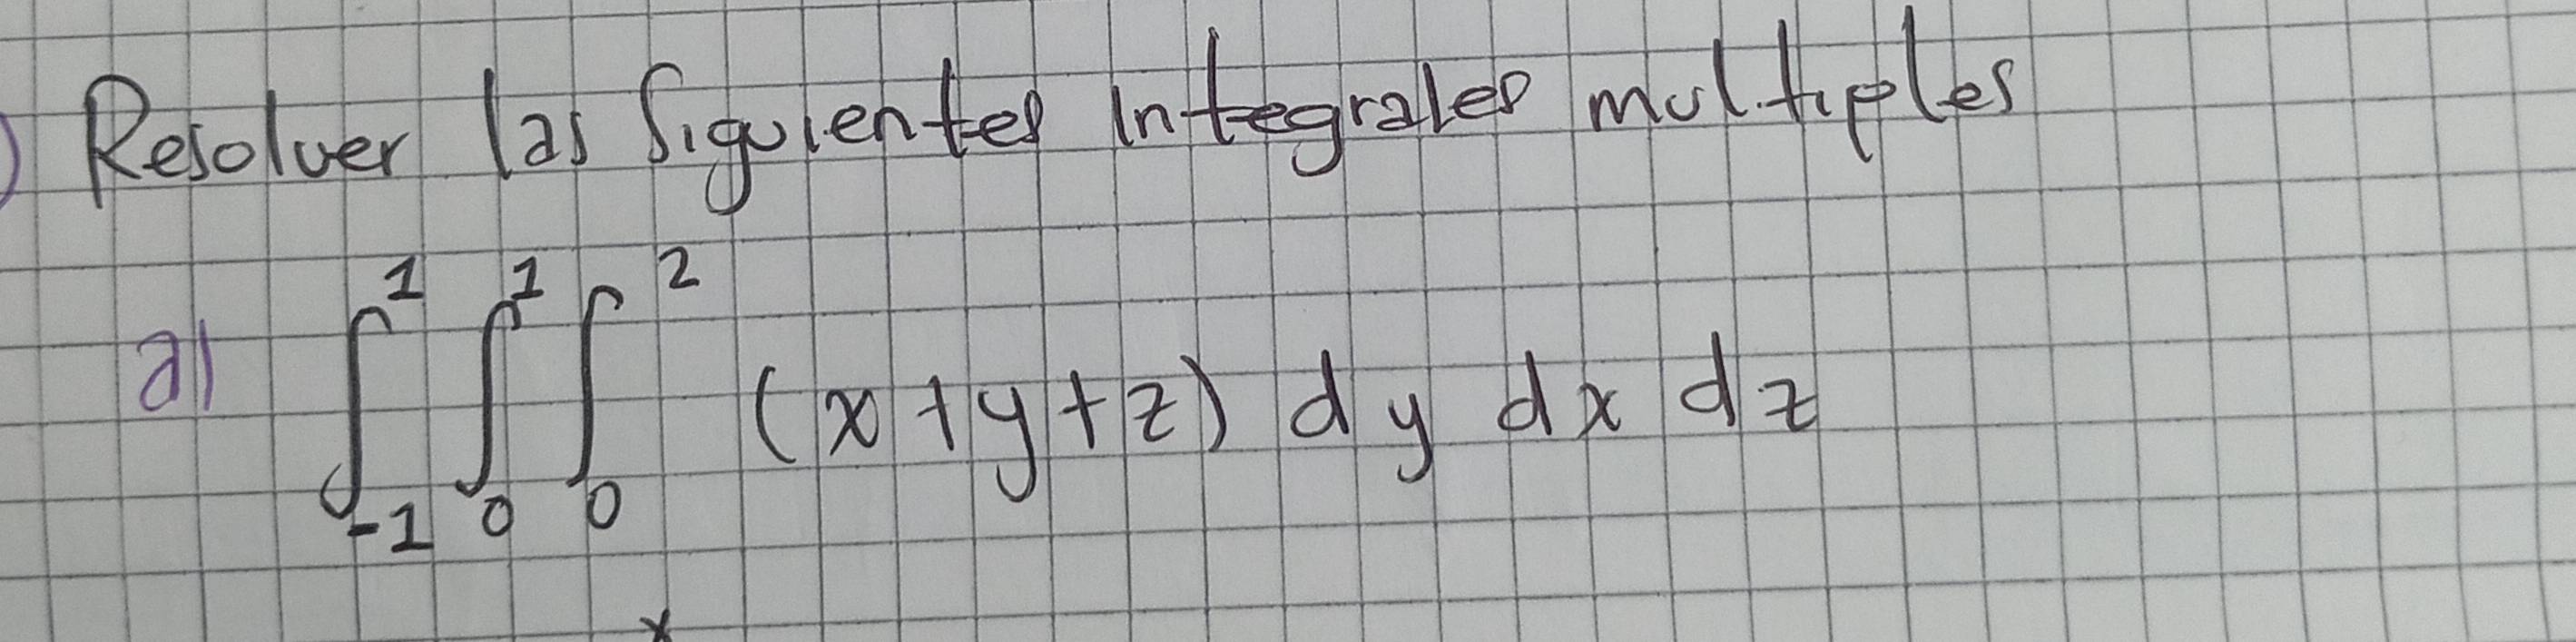 ) Resolver las siguientes integrales multiples
a) ∫_{-1}^{1} ∫_{0}^{1} ∫_{0}^{2} (x+y+z) dy dx dz
x